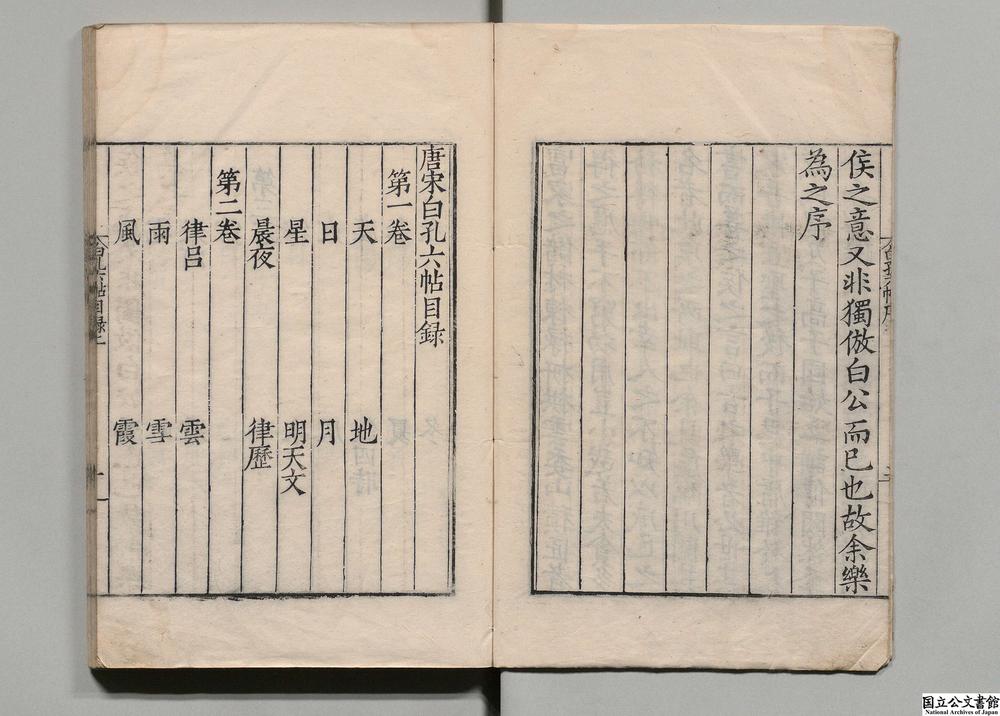 侯之意又非獨倣白公而已也故余樂
為之序
唐宋白孔六帖目録
第一卷
天 地
日 月
星 明天文
晨夜 律歷
第二卷
律呂 雲
雨 雪
風 霞
国立公文書館
National Archives of Japan